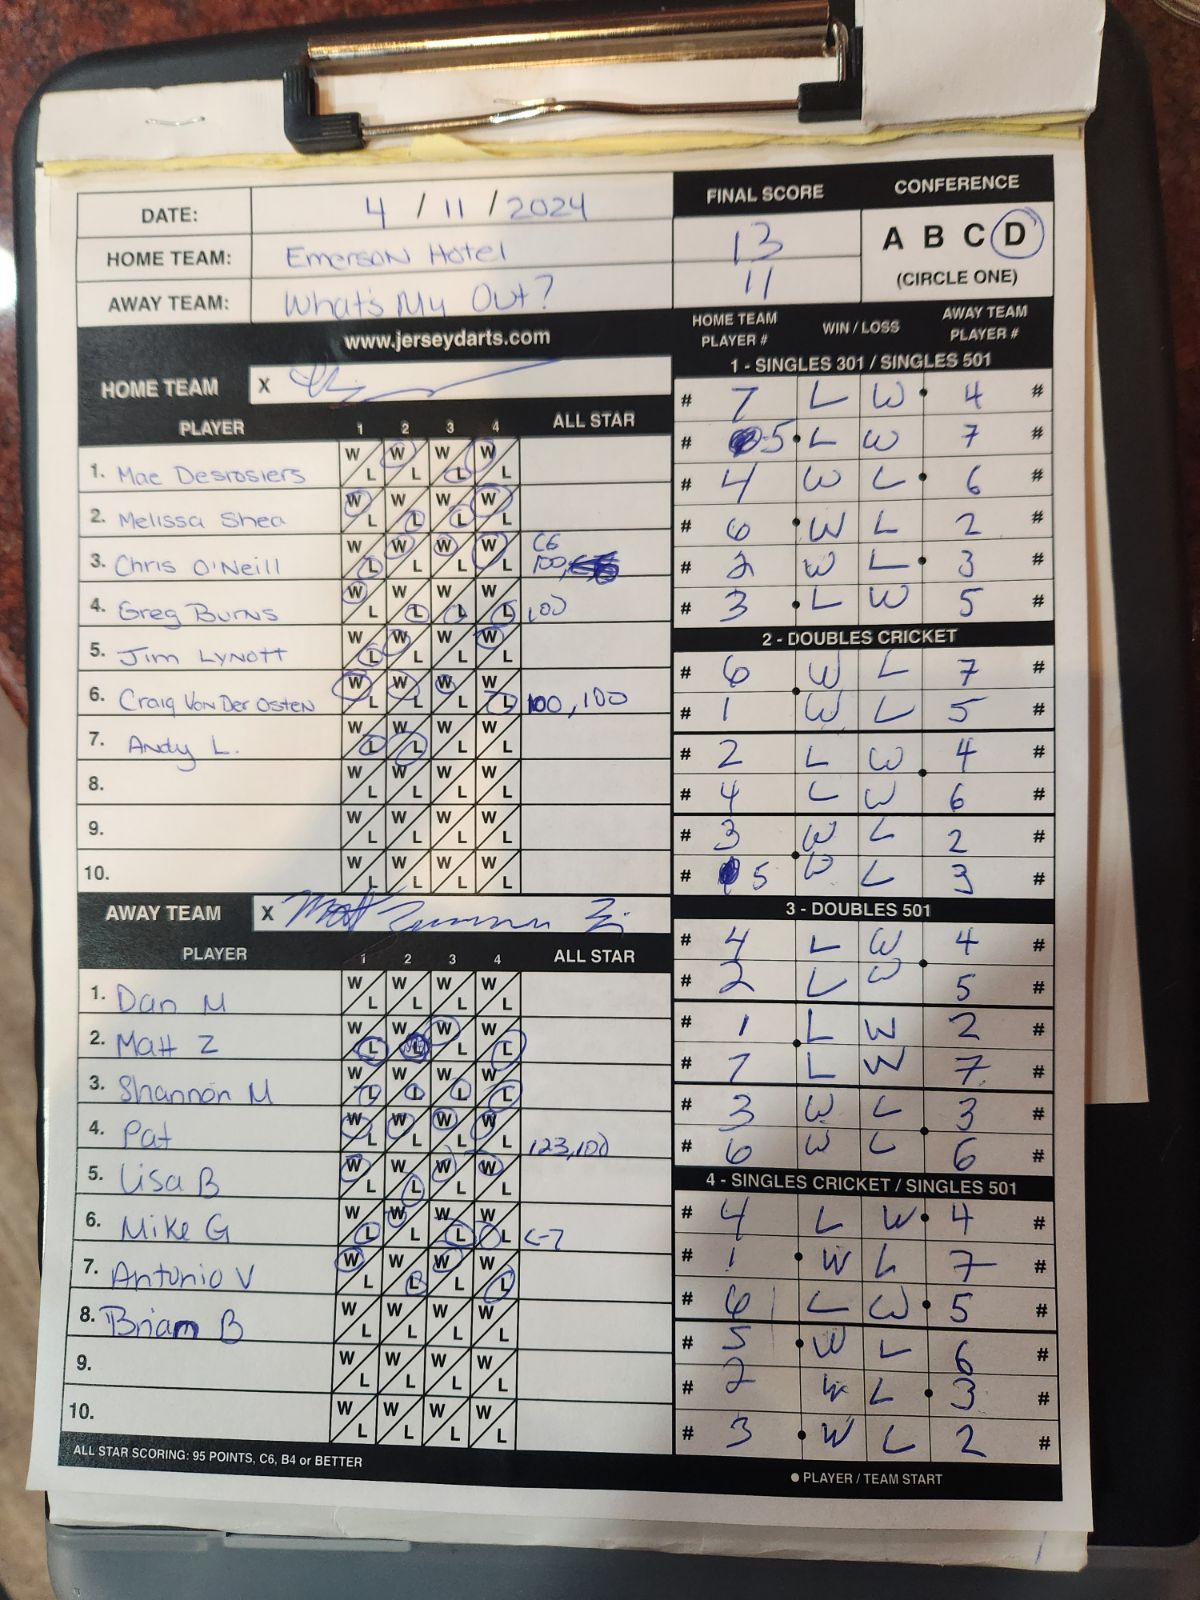 DATE: 4 / 11 / 2024
HOME TEAM: Emerson Hotel
AWAY TEAM: What's My Out?
FINAL SCORE
13
11
CONFERENCE
A B C D
(CIRCLE ONE)
www.jerseydarts.com
HOME TEAM X
PLAYER 1 2 3 4 ALL STAR
1. Mae Desrosiers W L W L W L W L
2. Melissa Shea W L W L W L W L
3. Chris O'Neill W L W L W L W L C6 100,
4. Greg Burns W L W L W L W L 100
5. Jim Lynott W L W L W L W L
6. Craig Van Der Osten W L W L W L W L 100, 100
7. Andy L. W L W L W L W L
8. W L W L W L W L
9. W L W L W L W L
10. W L W L W L W L
AWAY TEAM X Matt
PLAYER 1 2 3 4 ALL STAR
1. Dan M W L W L W L W L
2. Matt Z W L W L W L W L
3. Shannon M W L W L W L W L
4. Pat W L W L W L W L 123, 100
5. Lisa B W L W L W L W L
6. Mike G W L W L W L W L C-7
7. Antonio V W L W L W L W L
8. Brian B W L W L W L W L
9. W L W L W L W L
10. W L W L W L W L
ALL STAR SCORING: 95 POINTS, C6, B4 or BETTER
HOME TEAM PLAYER # WIN / LOSS AWAY TEAM PLAYER #
1 - SINGLES 301 / SINGLES 501
# 7 L W 4 #
# 5 L W 7 #
# 4 W L 6 #
# 6 W L 2 #
# 2 W L 3 #
# 3 L W 5 #
2 - DOUBLES CRICKET
# 6 W L 7 #
# 1 W L 5 #
# 2 L W 4 #
# 4 L W 6 #
# 3 W L 2 #
# 5 W L 3 #
3 - DOUBLES 501
# 4 L W 4 #
# 2 L W 5 #
# 1 L W 2 #
# 7 L W 7 #
# 3 W L 3 #
# 6 W L 6 #
4 - SINGLES CRICKET / SINGLES 501
# 4 L W 4 #
# 1 W L 7 #
# 6 L W 5 #
# 5 W L 6 #
# 2 W L 3 #
# 3 W L 2 #
● PLAYER / TEAM START